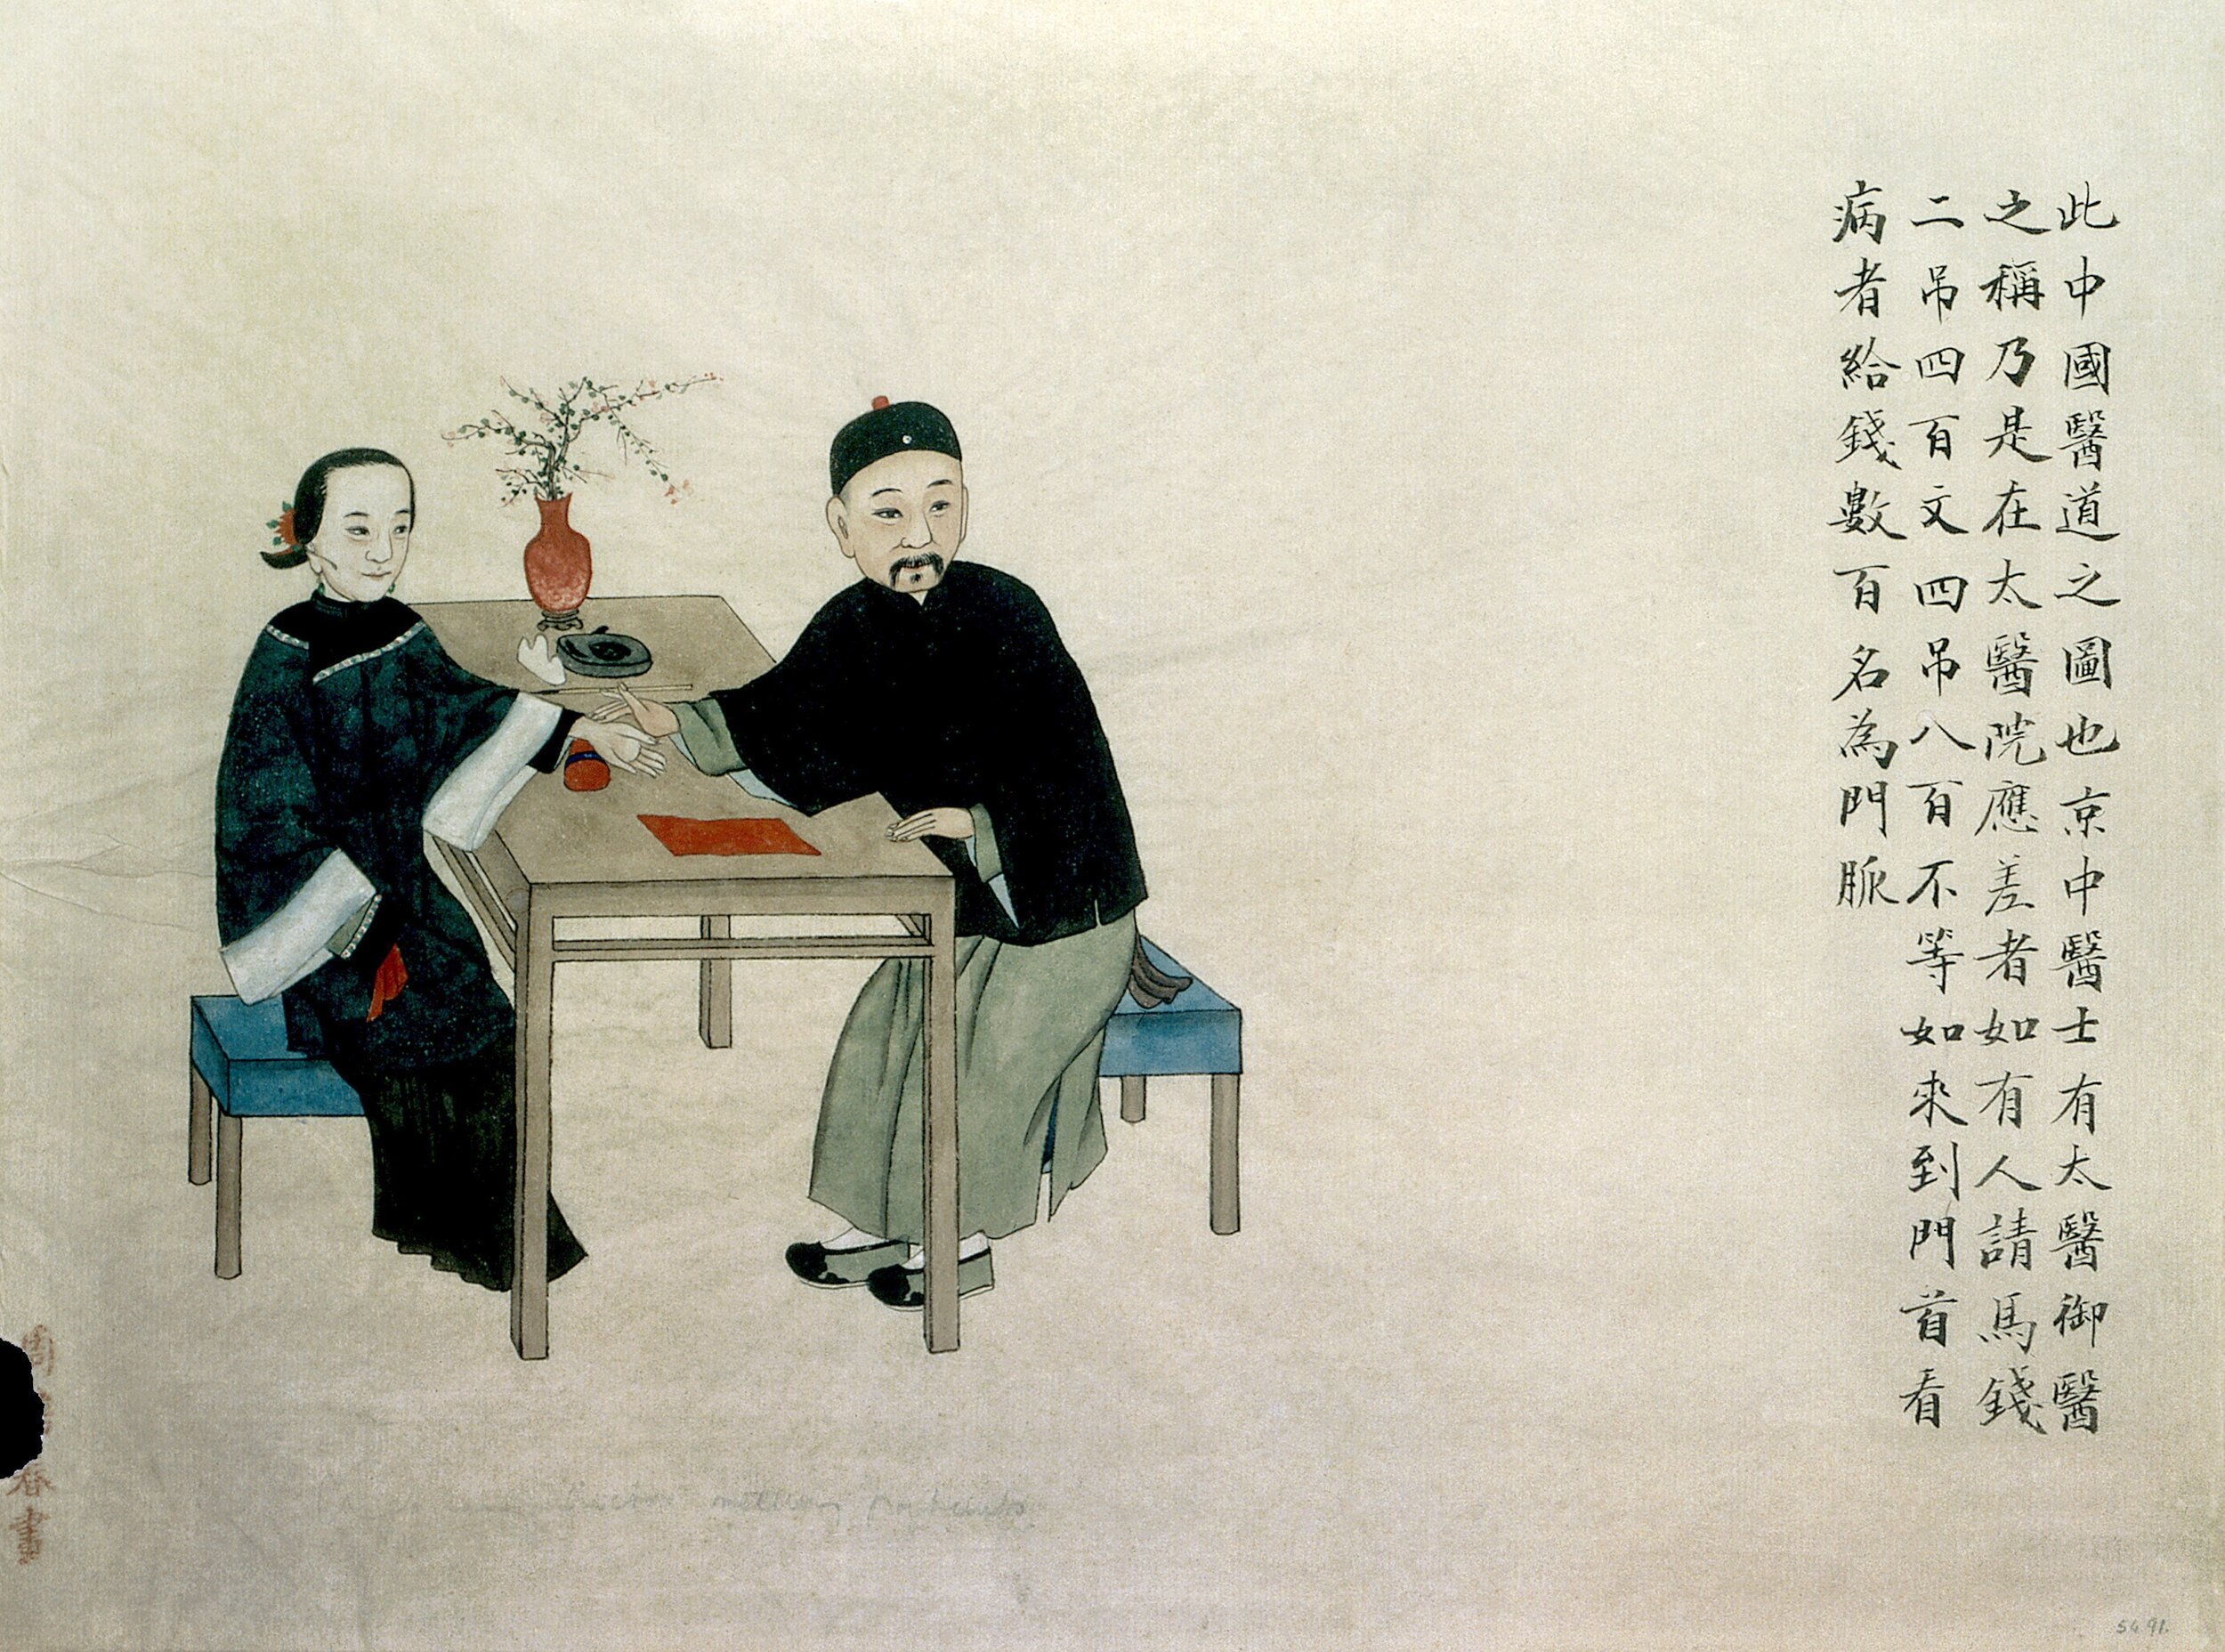 此中國醫道之圖也京中醫士有太醫御醫
之稱乃是在太醫院應差者如有人請馬錢
二吊四百文四吊八百不等如來到門首看
病者給錢數百名為門脈
周 春畫
54.91.